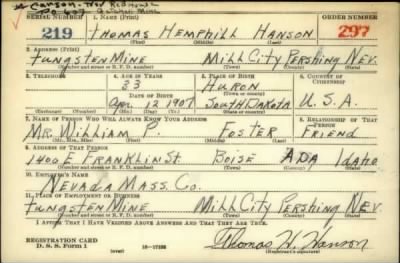 Carson, Nev
SERIAL NUMBER 1. NAME (Print) ORDER NUMBER
219 THOMAS HEMPHILL HANSON 297
(First) (Middle) (Last)
2. ADDRESS (Print)
TUNGSTEN MINE MILL CITY PERSHING NEV.
(Number and street or R. F. D. number) (Town) (County) (State)
3. TELEPHONE 4. AGE IN YEARS 5. PLACE OF BIRTH 6. COUNTRY OF CITIZENSHIP
33 HURON
DATE OF BIRTH (Town or county)
APR. 12 1907 SOUTH DAKOTA U. S. A.
(Exchange) (Number) (Mo.) (Day) (Yr.) (State or country)
7. NAME OF PERSON WHO WILL ALWAYS KNOW YOUR ADDRESS 8. RELATIONSHIP OF THAT PERSON
MR. WILLIAM P. FOSTER FRIEND
(Mr., Mrs., Miss) (First) (Middle) (Last)
9. ADDRESS OF THAT PERSON
1400 E FRANKLIN ST. BOISE ADA IDAHO
(Number and street or R. F. D. number) (Town) (County) (State)
10. EMPLOYER'S NAME
NEVADA MASS. CO.
11. PLACE OF EMPLOYMENT OR BUSINESS
TUNGSTEN MINE MILL CITY PERSHING NEV.
(Number and street or R. F. D. number) (Town) (County) (State)
I AFFIRM THAT I HAVE VERIFIED ABOVE ANSWERS AND THAT THEY ARE TRUE.
REGISTRATION CARD
D. S. S. Form 1 (over) 16-17105 Thomas H. Hanson
(Registrant's signature)